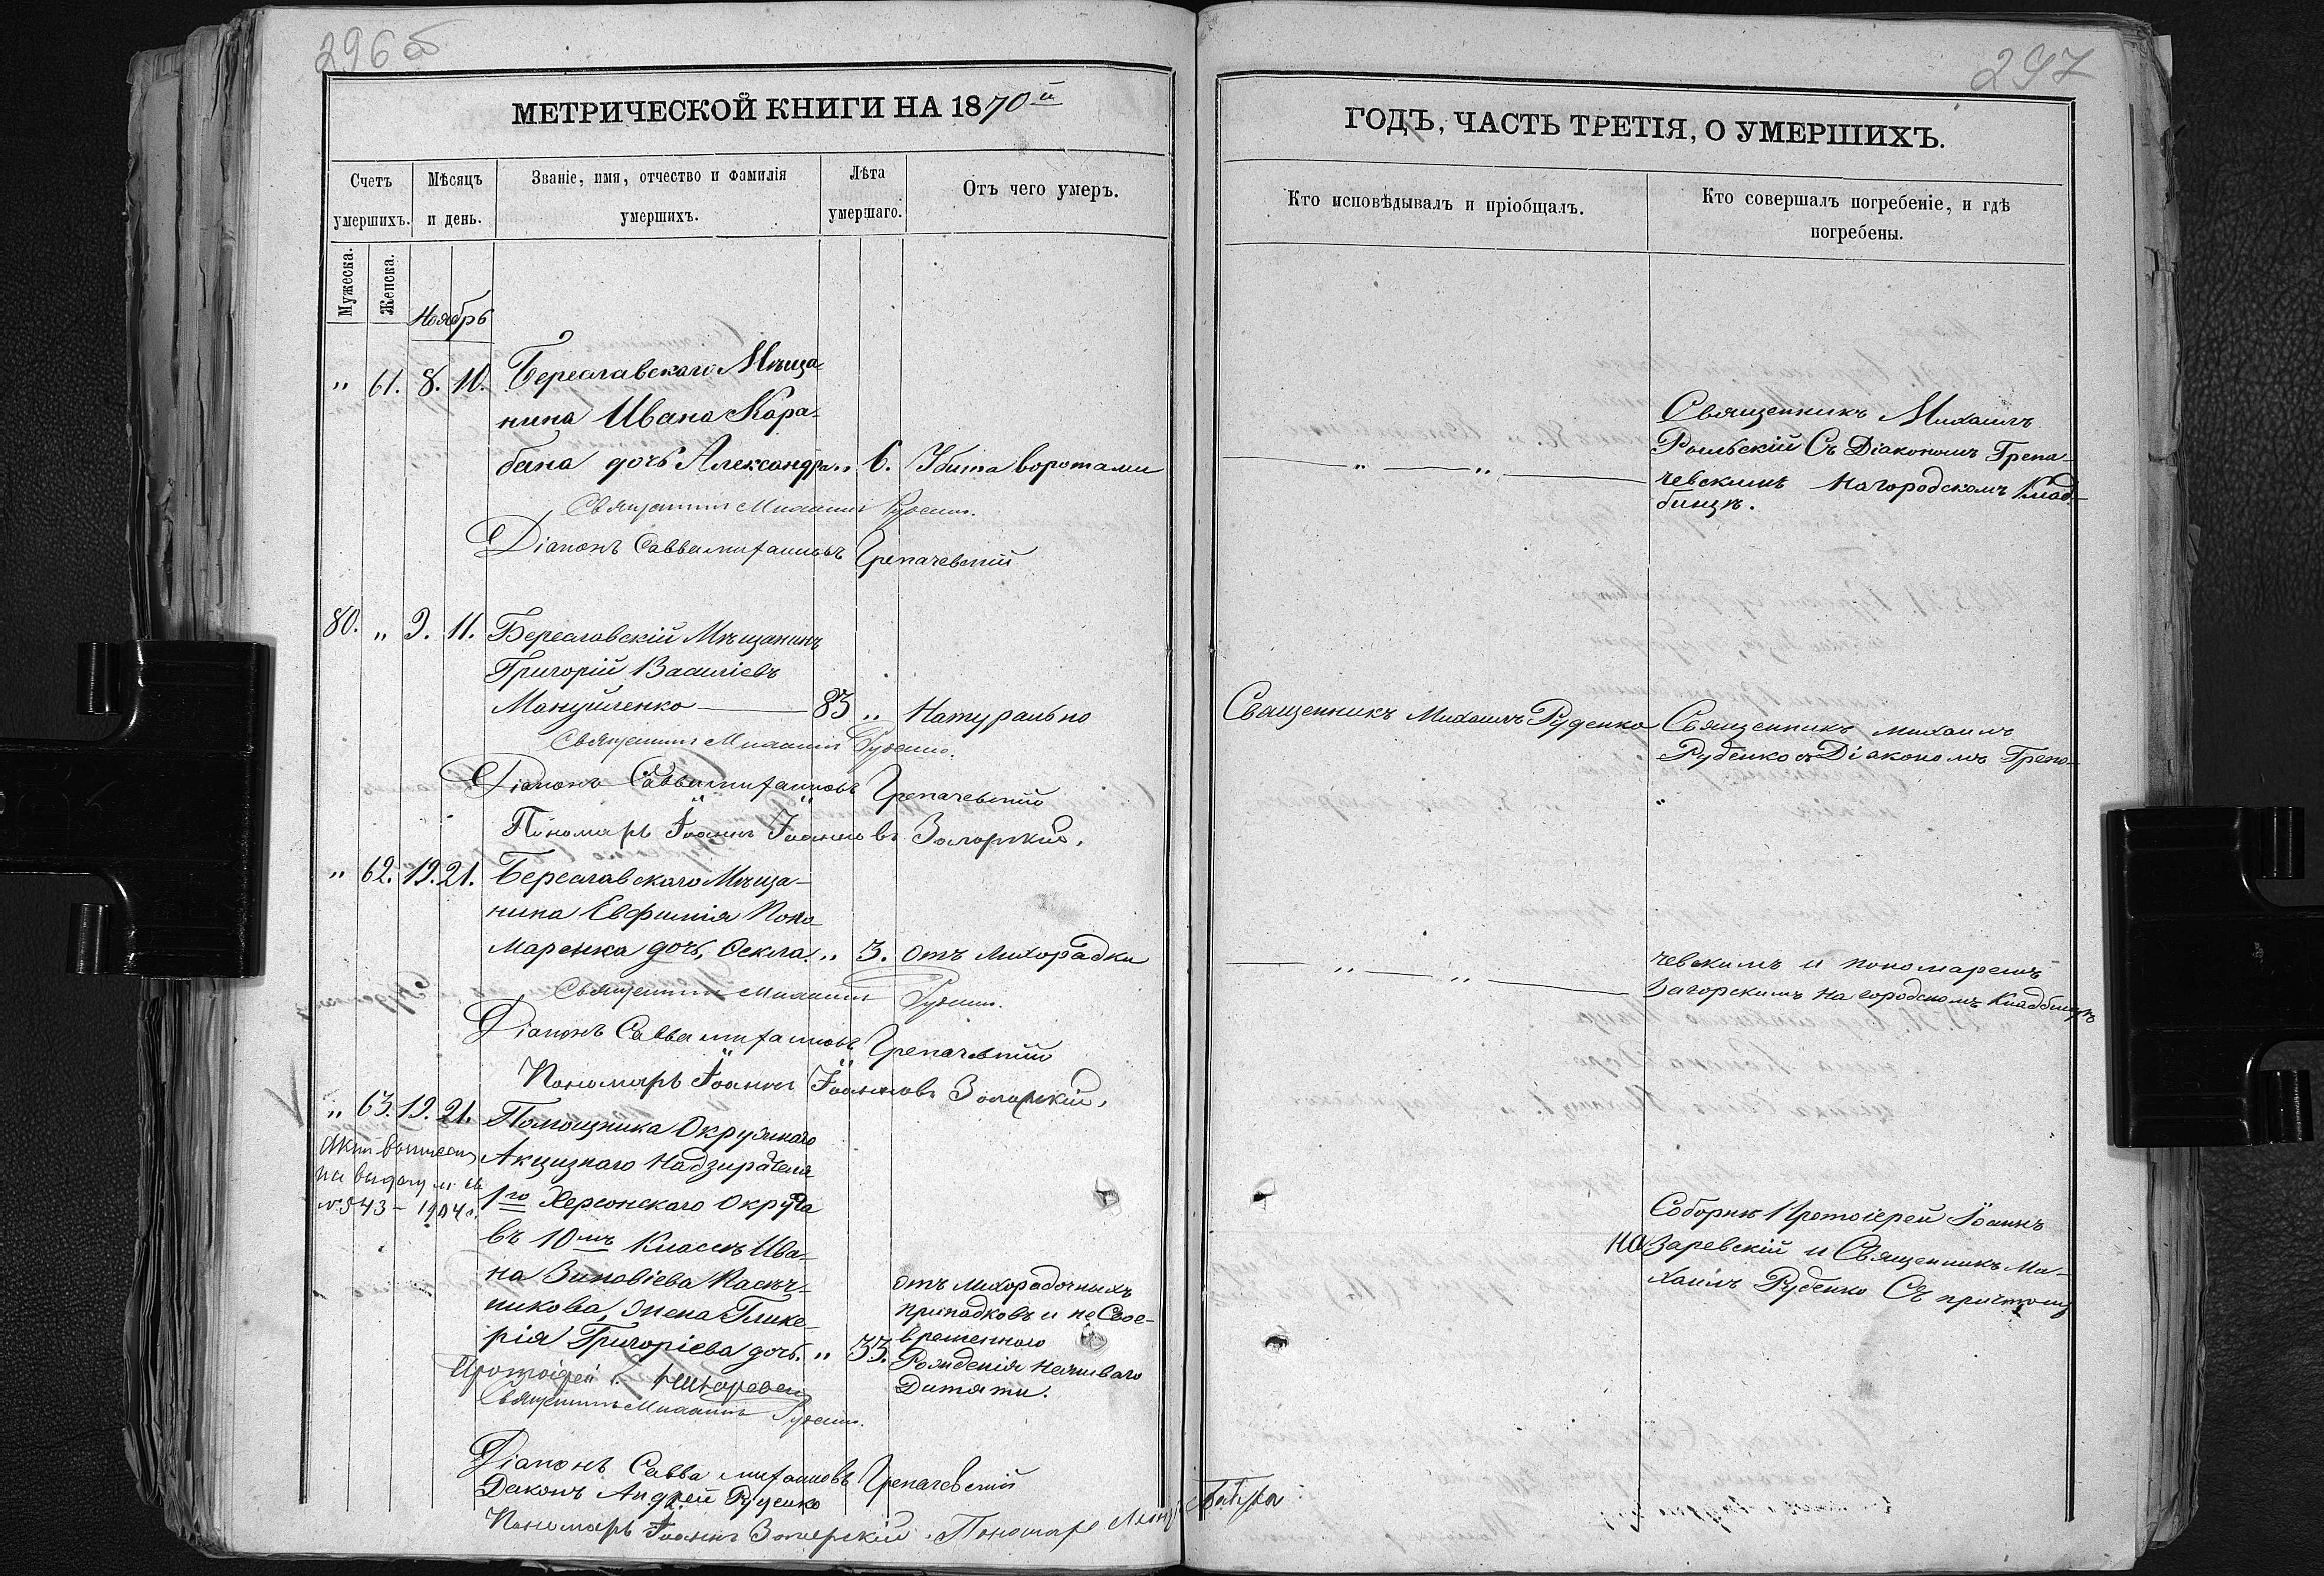 296 об
МЕТРИЧЕСКОЙ КНИГИ НА 1870й
Счетъ умершихъ.
Мѣсяцъ и день.
Званіе, имя, отчество и фамилія умершихъ.
Лѣта умершаго.
Отъ чего умеръ.
Мужеска.
Женска.
Ноябрь
„ 61. 8. 10. Береславскаго Мѣща-
нина Ивана Кара-
бана дочь Александра „ 6. Убита воротами
Священникъ Михаилъ Руденко.
Діаконъ Савва Михаиловъ Грепачевскій
80. „ 9. 11. Береславскій Мѣщанинъ
Григорій Василіевъ
Мануйленко 83 „ Натурально
Священникъ Михаилъ Руденко.
Діаконъ Савва Михаиловъ Грепачевскій
Пономарь Іоаннъ Іоанновъ Загорскій.
„ 62. 19. 21. Береславскаго Мѣща-
нина Евфимія Поно-
маренка дочь, Секла. „ 3. отъ лихорадки
Священникъ Михаилъ Руденко.
Діаконъ Савва Михаиловъ Грепачевскій
Пономарь Іоаннъ Іоанновъ Загорскій.
„ 63. 19. 21. Помощника Окружнаго
Акцизнаго Надзирателя
1го Херсонскаго Округа
въ 10мъ Классѣ Ива-
на Зиновіева Пасѣч-
никова, жена Глике-
рія Григоріева дочь. „ 33.
отъ лихорадочныхъ
припадковъ и не Свое-
временнаго
Рожденія неживаго
Дитяти.
на выдачу
№ 543 – 1904 г.
Протоіерей І. Назаревскій
Священникъ Михаилъ Руденко.
Діаконъ Савва Михаиловъ Грепачевскій
Діаконъ Андрей Руденко
Пономарь Іоаннъ Загорскій. Пономарь
297
ГОДЪ, ЧАСТЬ ТРЕТІЯ, О УМЕРШИХЪ.
Кто исповѣдывалъ и пріобщалъ.
Кто совершалъ погребеніе, и гдѣ
погребены.
Священникъ Михаилъ
Съ Діакономъ Грепа-
чевскимъ на городскомъ Клад-
бищѣ.
Священникъ Михаилъ Руденко
Священникъ Михаилъ
Руденко съ Діакономъ Грепа-
чевскимъ и пономаремъ
Загорскимъ на городскомъ Кладбищѣ
Соборнѣ Протоіерей Іоаннъ
Назаревскій и Священникъ Ми-
хаилъ Руденко Съ причтомъ